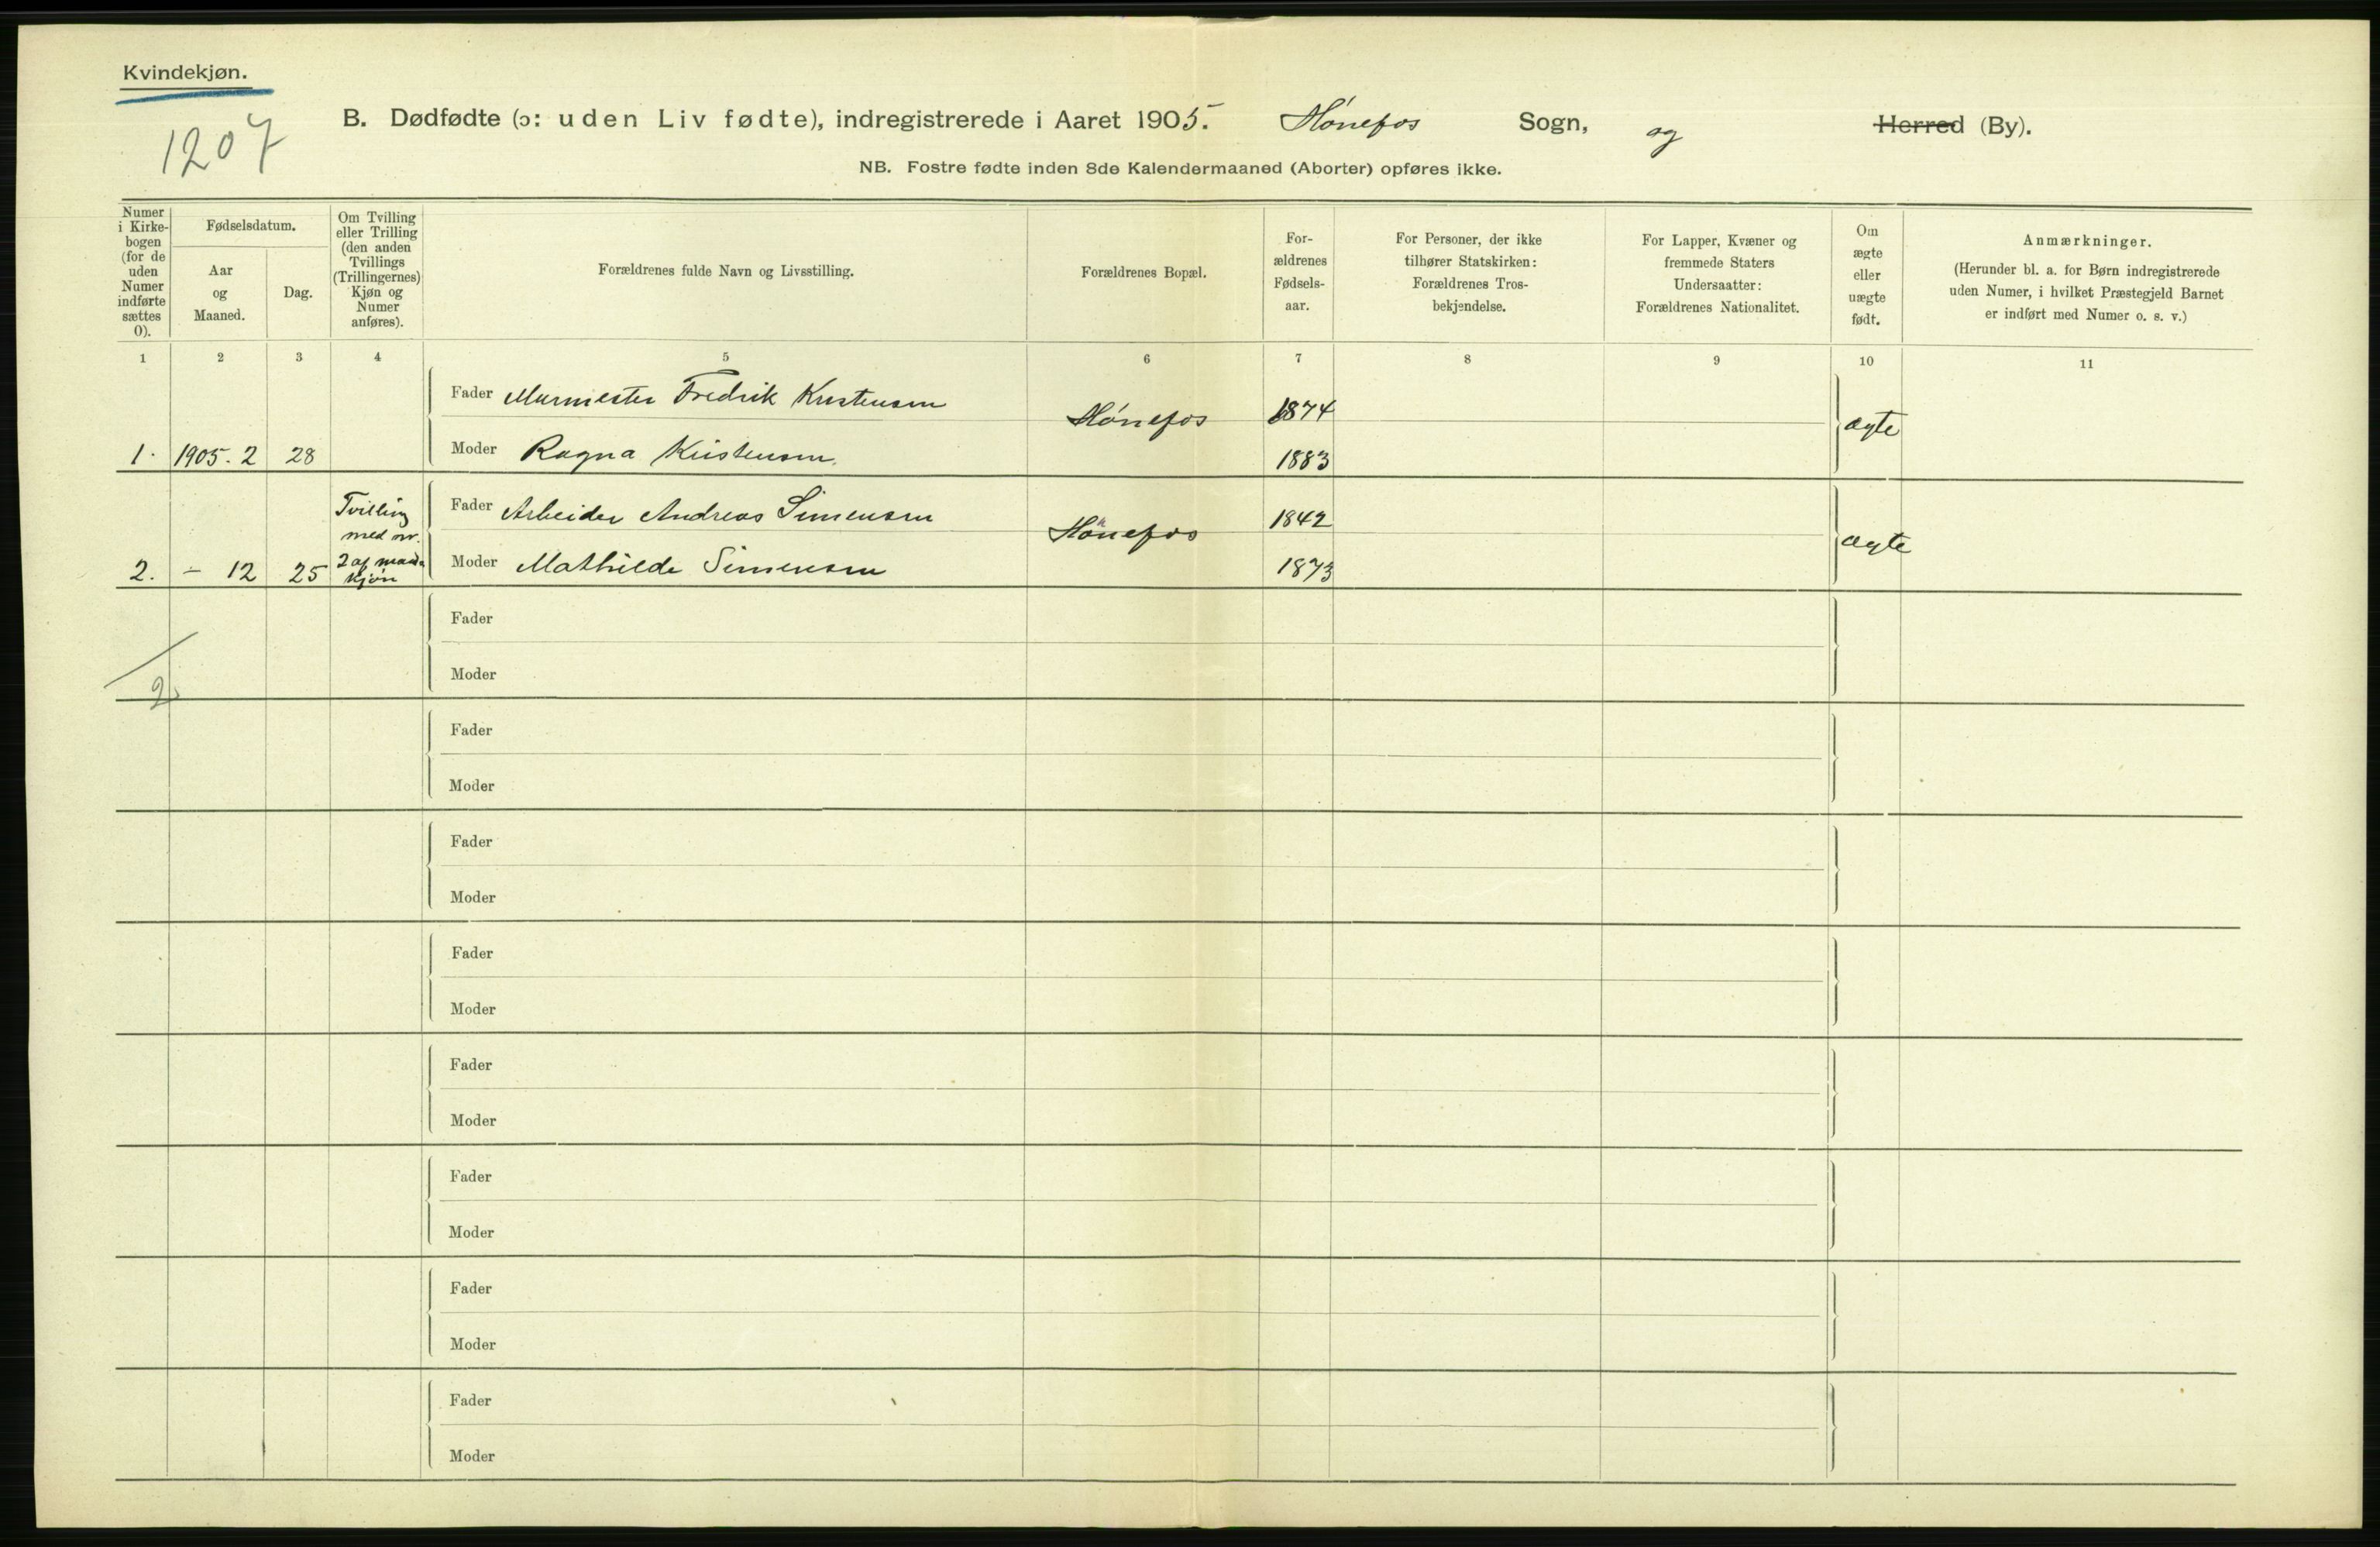 Kvindekjøn.
1207
B. Dødfødte (ɔ: uden Liv fødte), indregistrerede i Aaret 1905. Hónefos Sogn, og Herred (By).
NB. Fostre fødte inden 8de Kalendermaaned (Aborter) opføres ikke.
Numer
i Kirke-
bogen
(for de
uden
Numer
indførte
sættes
0).
Fødselsdatum.
Aar
og
Maaned.
Dag.
Om Tvilling
eller Trilling
(den anden
Tvillings
(Trillingernes)
Kjøn og
Numer
anføres).
Forældrenes fulde Navn og Livsstilling.
Forældrenes Bopæl.
For-
ældrenes
Fødsels-
aar.
For Personer, der ikke
tilhører Statskirken:
Forældrenes Tros-
bekjendelse.
For Lapper, Kvæner og
fremmede Staters
Undersaatter:
Forældrenes Nationalitet.
Om
ægte
eller
uægte
født.
Anmærkninger.
(Herunder bl. a. for Børn indregistrerede
uden Numer, i hvilket Præstegjeld Barnet
er indført med Numer o. s. v.)
1 2 3 4 5 6 7 8 9 10 11
Fader Murmester Fredrik Kristensen Hónefos 1874 ægte
1. 1905. 2 28 Moder Ragna Kristensen. 1883
Tvilling
med nr.
2 af mands
kjøn
Fader Arbeider Andreas Simensen Hónefos 1842 ægte
2. - 12 25 Moder Mathilde Simensen 1873
Fader
Moder
2
Fader
Moder
Fader
Moder
Fader
Moder
Fader
Moder
Fader
Moder
Fader
Moder
Fader
Moder